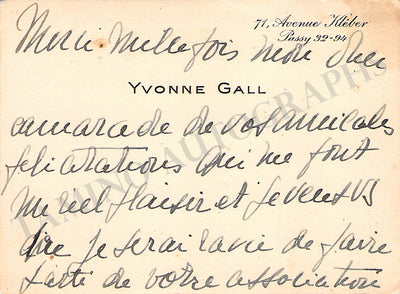 71, Avenue Kléber
Passy 32-94
Merci mille fois mon cher
YVONNE GALL
camarade de vos amicales
félicitations qui me font
un réel plaisir et je veux vs
dire je serai ravie de faire
partie de votre association
TAMINO AUTOGRAPHS